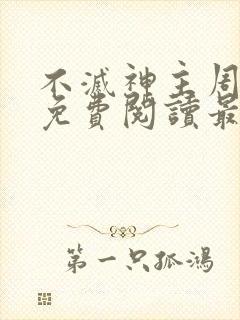 不滅神主周
免費閱讀最
第一只孤鴻